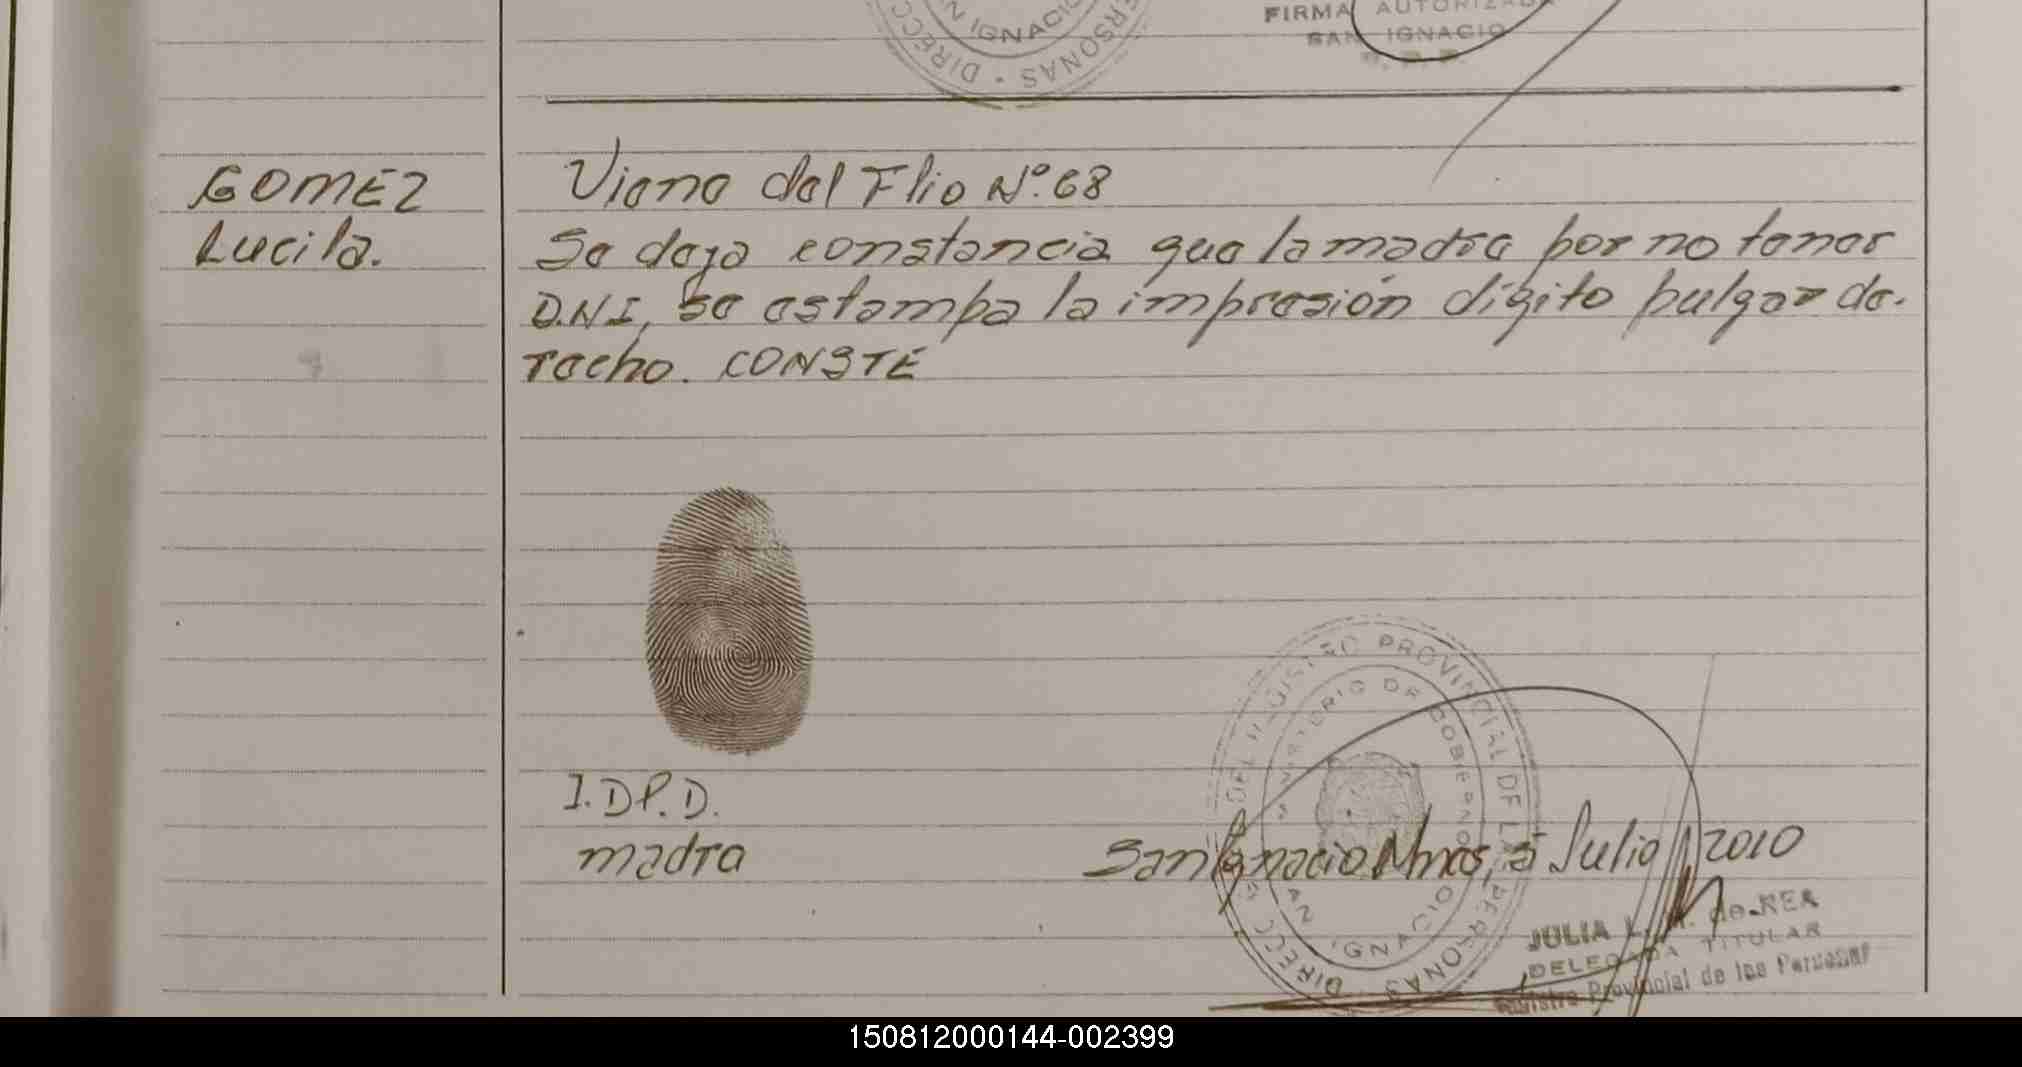 DIRECC PERSONAS
SAN IGNACIO
FIRMA AUTORIZADA
SAN IGNACIO
GOMEZ
Lucila.
Viene del Flio Nº. 68
Se deja constancia que la madre por no tener
D.N.I, se estampa la impresión dígito pulgar de-
recho. CONSTE
I.DP.D.
madre
REGISTRO PROVINCIAL DE LAS PERSONAS
DIRECC
MINISTERIO DE GOBIERNO
SAN IGNACIO
San Ignacio Mnes, a Julio 2010
JULIA L. de REA
DELEGADA TITULAR
Registro Provincial de las Personas
150812000144-002399